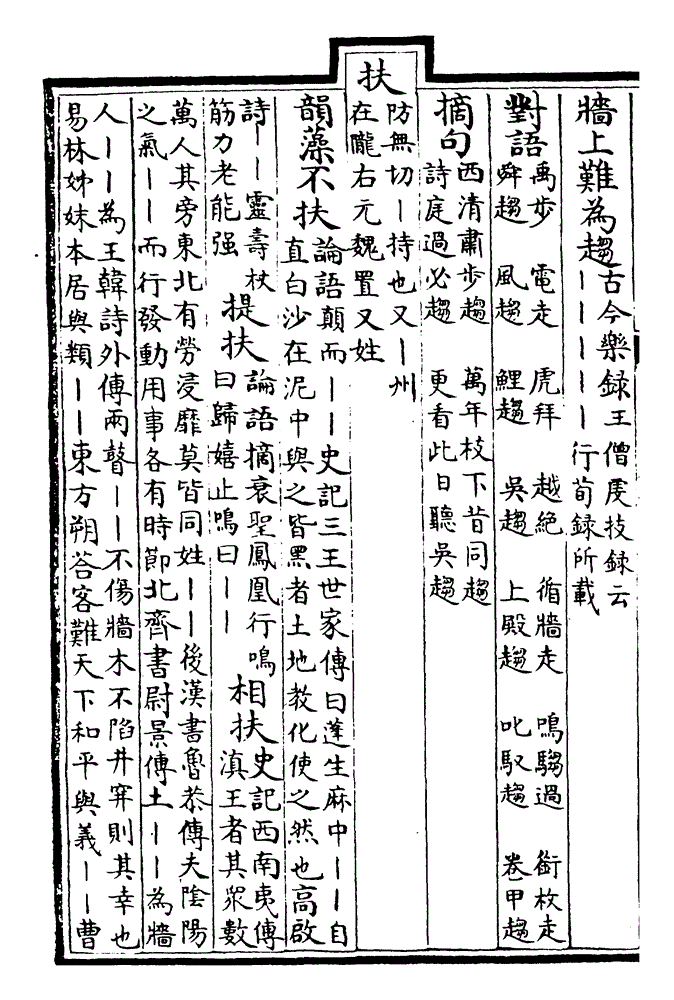 牆上難為趨
古今樂録王僧虔技録云
｜｜｜｜｜行荀録所載
對語
禹步　電走　虎拜　越絶　循牆走　鳴騶過　銜枚走
舜趨　風趨　鯉趨　吳趨　上殿趨　叱馭趨　卷甲趨
摘句
西清肅步趨　萬年枝下昔同趨
詩庭過必趨　更看此日聽吳趨
扶
防無切｜持也又｜州
在隴右元魏置又姓
韻藻不扶
論語顛而｜｜史記三王世家傳曰蓬生麻中｜｜自
直白沙在泥中與之皆黑者土地教化使之然也高啟
詩｜｜靈壽杖
筋力老能强
提扶
論語摘衰聖鳳凰行鳴
曰歸嬉止鳴曰｜｜
相扶
史記西南夷傳
滇王者其衆數
萬人其旁東北有勞浸靡莫皆同姓｜｜後漢書魯恭傳夫陰陽
之氣｜｜而行發動用事各有時節北齊書尉景傳土｜｜為牆
人｜｜為王韓詩外傳兩瞽｜｜不傷牆木不陷井穽則其幸也
易林姊妹本居與類｜｜東方朔荅客難天下和平與義｜｜曹